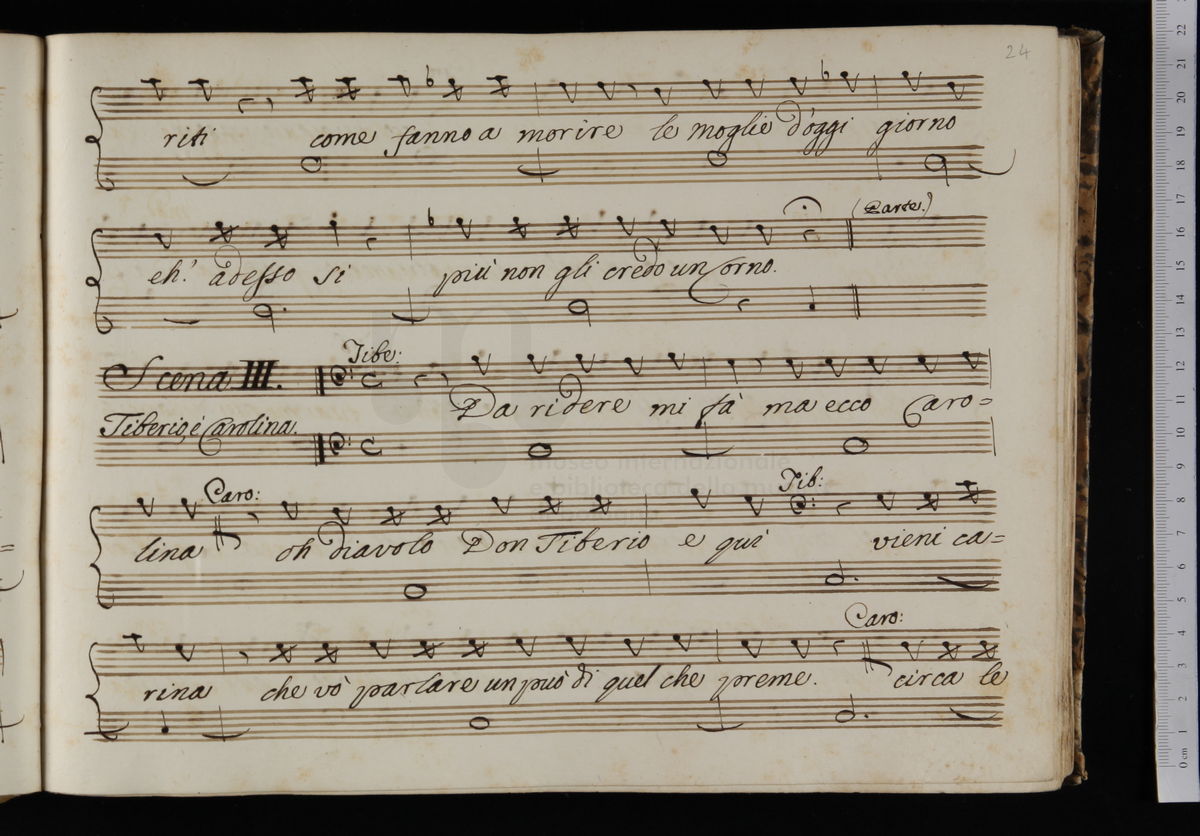 24
riti come fanno a morire le moglie d'oggi giorno
(Parte.)
eh! adesso si più non gli credo un Corno.
Tibe:
Scena III. Da ridere mi fà ma ecco Caro=
Tiberio, e Carolina.
museo internazionale
e biblioteca della musica
Caro: Tib:
lina oh diavolo Don Tiberio e quì vieni ca=
Caro:
rina che vò parlare un può di quel che preme. circa le
0 cm 1 2 3 4 5 6 7 8 9 10 11 12 13 14 15 16 17 18 19 20 21 22